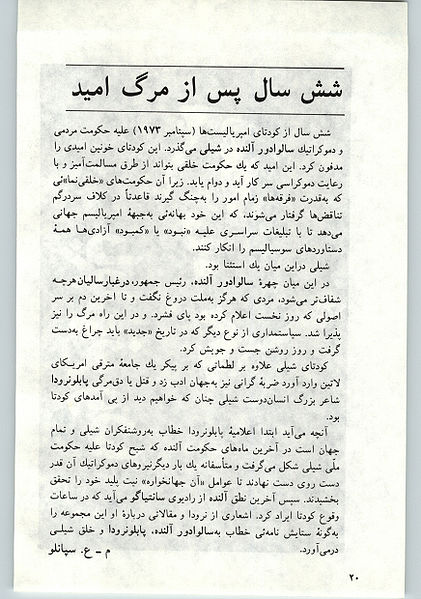 شش سال پس از مرگ امید
شش سال از کودتای امپریالیست‌ها (سپتامبر ۱۹۷۳) علیه حکومت مردمی
و دموکراتیك سالوادور آلنده در شیلی می‌گذرد. این کودتای خونین امیدی را
مدفون کرد. این امید که یك حکومت خلقی بتواند از طرق مسالمت‌آمیز و با
رعایت دموکراسی سر کار آید و دوام یابد. زیرا آن حکومت‌های «خلقی‌نما»ئی
که به‌قدرت «فرقه‌ها» زمام امور را به‌چنگ گیرند قاعدتاً در کلاف سردرگم
تناقض‌ها گرفتار می‌شوند، که این خود بهانه‌ئی به‌جبههٔ امپریالیسم جهانی
می‌دهد تا با تبلیغات سراسری علیه «نبود» یا «کمبود» آزادی‌ها همهٔ
دستاوردهای سوسیالیسم را انکار کنند.
شیلی دراین میان یك استثنا بود.
در این میان چهرهٔ سالوادور آلنده، رئیس جمهور، درغبارسالیان هرچه
شفاف‌تر می‌شود، مردی که هرگز به‌ملت دروغ نگفت و تا آخرین دم بر سر
اصولی که روز نخست اعلام کرده بود پای فشرد. و در این راه مرگ را نیز
پذیرا شد. سیاستمداری از نوع دیگر که در تاریخ «جدید» باید چراغ به‌دست
گرفت و روز روشن جست و جویش کرد.
کودتای شیلی علاوه بر لطماتی که بر پیکر یك جامعهٔ مترقی امریکای
لاتین وارد آورد ضربهٔ گرانی نیز به‌جهان ادب زد و قتل یا دق‌مرگی پابلونرودا
شاعر بزرگ انسان‌دوست شیلی چنان که خواهیم دید از پی آمدهای کودتا
بود.
آنچه می‌آید ابتدا اعلامیهٔ پابلونرودا خطاب به‌روشنفکران شیلی و تمام
جهان است در آخرین ماه‌های حکومت آلنده که شبح کودتا علیه حکومت
ملی شیلی شکل می‌گرفت و متأسفانه یك بار دیگرنیروهای دموکراتیك آن قدر
دست روی دست نهادند تا عوامل «آن جهانخواره» نیت پلید خود را تحقق
بخشیدند. سپس آخرین نطق آلنده از رادیوی سانتیاگو می‌آید که در ساعات
وقوع کودتا ایراد کرد. اشعاری از نرودا و مقالاتی دربارهٔ او این مجموعه را
به‌گونهٔ ستایش نامه‌ئی خطاب به‌سالوادور آلنده، پابلونرودا و خلق شیلی
درمی‌آورد.
م ــ ع. سپانلو
۲۰